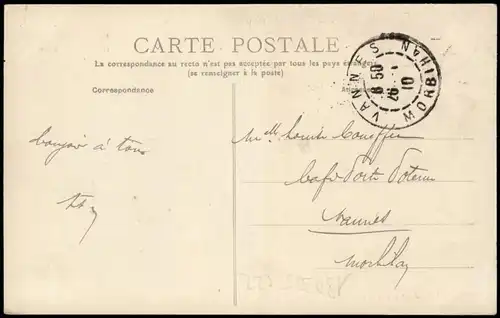 CARTE POSTALE
La correspondance au recto n'est pas acceptée par tous les pays étrangers
(se renseigner à la poste)
VANNES
8 50
26
10
MORBIHAN
Correspondance
bonjour à tous
Mlle Louise
Café Porte Poterne
Vannes
Morbihan